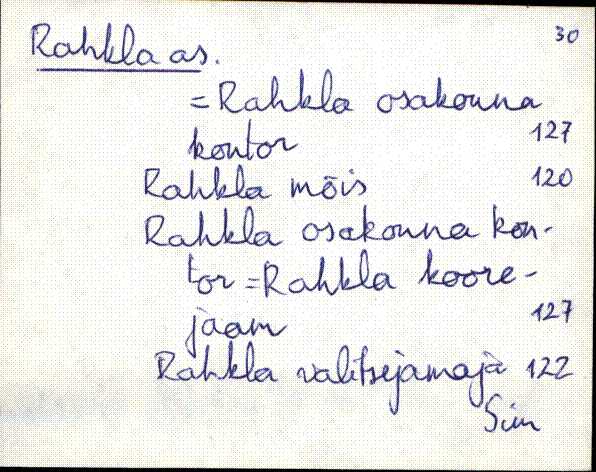 Rahkla as. 30
= Rahkla osakonna
kontor 127
Rahkla mõis 120
Rahkla osakonna kon-
tor = Rahkla koore-
jaam 127
Rahkla valitsejamaja 122
Sim